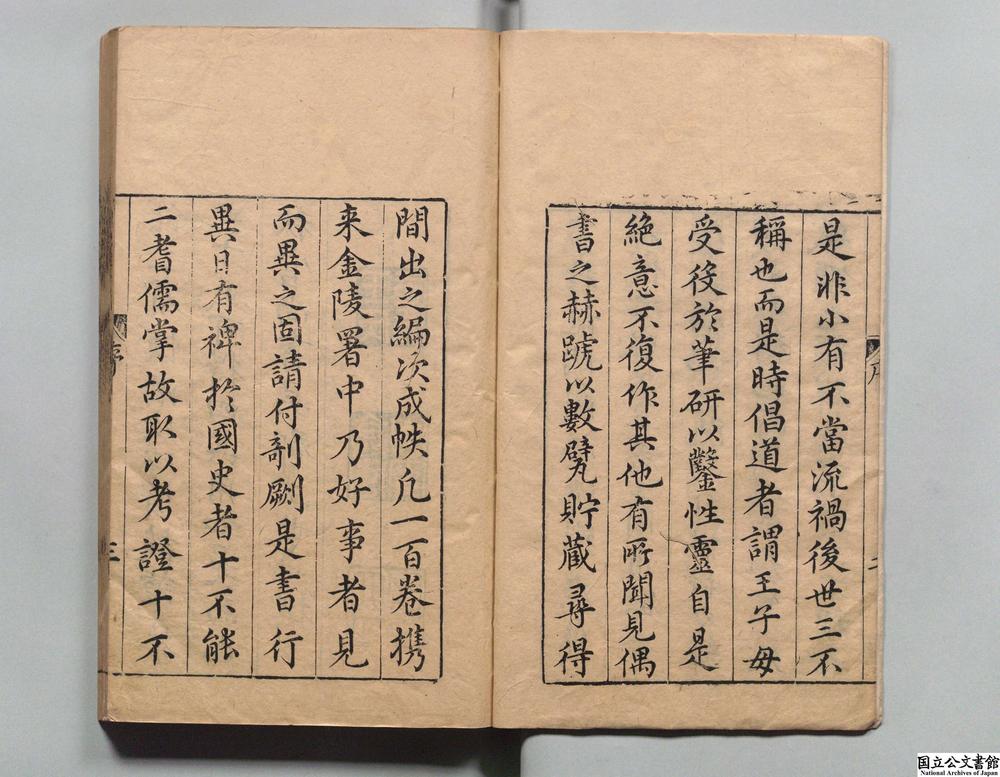 是非小有不當流禍後世三不
稱也而是時倡道者謂王子毋
受役於筆研以鑿性靈自是
絶意不復作其他有所聞見偶
書之赫蹏以數甓貯藏尋得
序
二
間出之編次成帙凡一百卷携
来金陵署中乃好事者見
而異之固請付剞劂是書行
異日有裨於國史者十不能
二耆儒掌故取以考證十不
序
三
国立公文書館
National Archives of Japan